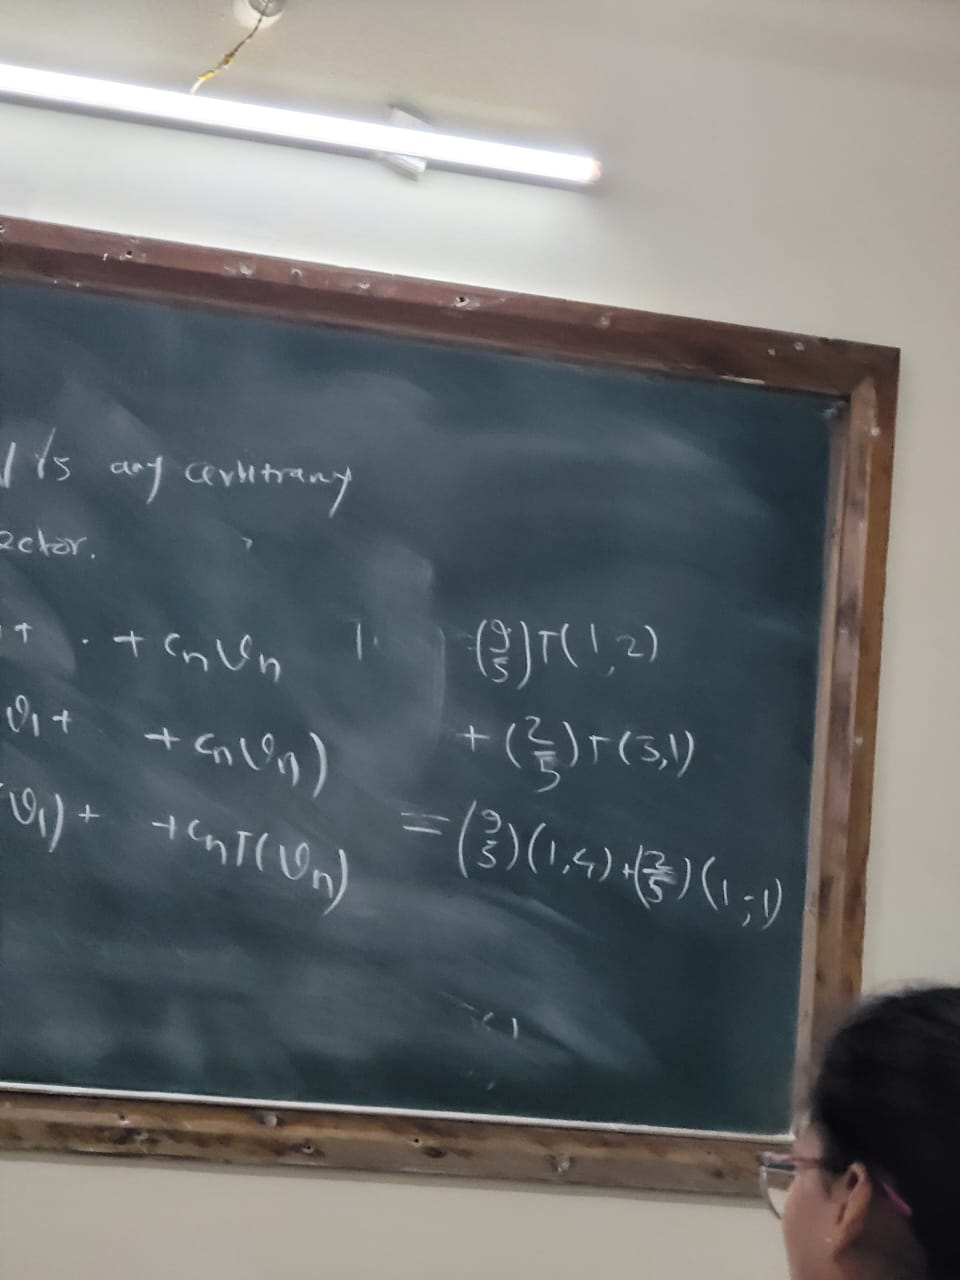 is any arbitrary
ector.
+ . + cₙvₙ
v₁ + + cₙvₙ)
v₁) + + cₙT(vₙ)
(9/5)T(1,2)
+ (2/5)T(3,1)
= (9/5)(1,4) + (2/5)(1,1)